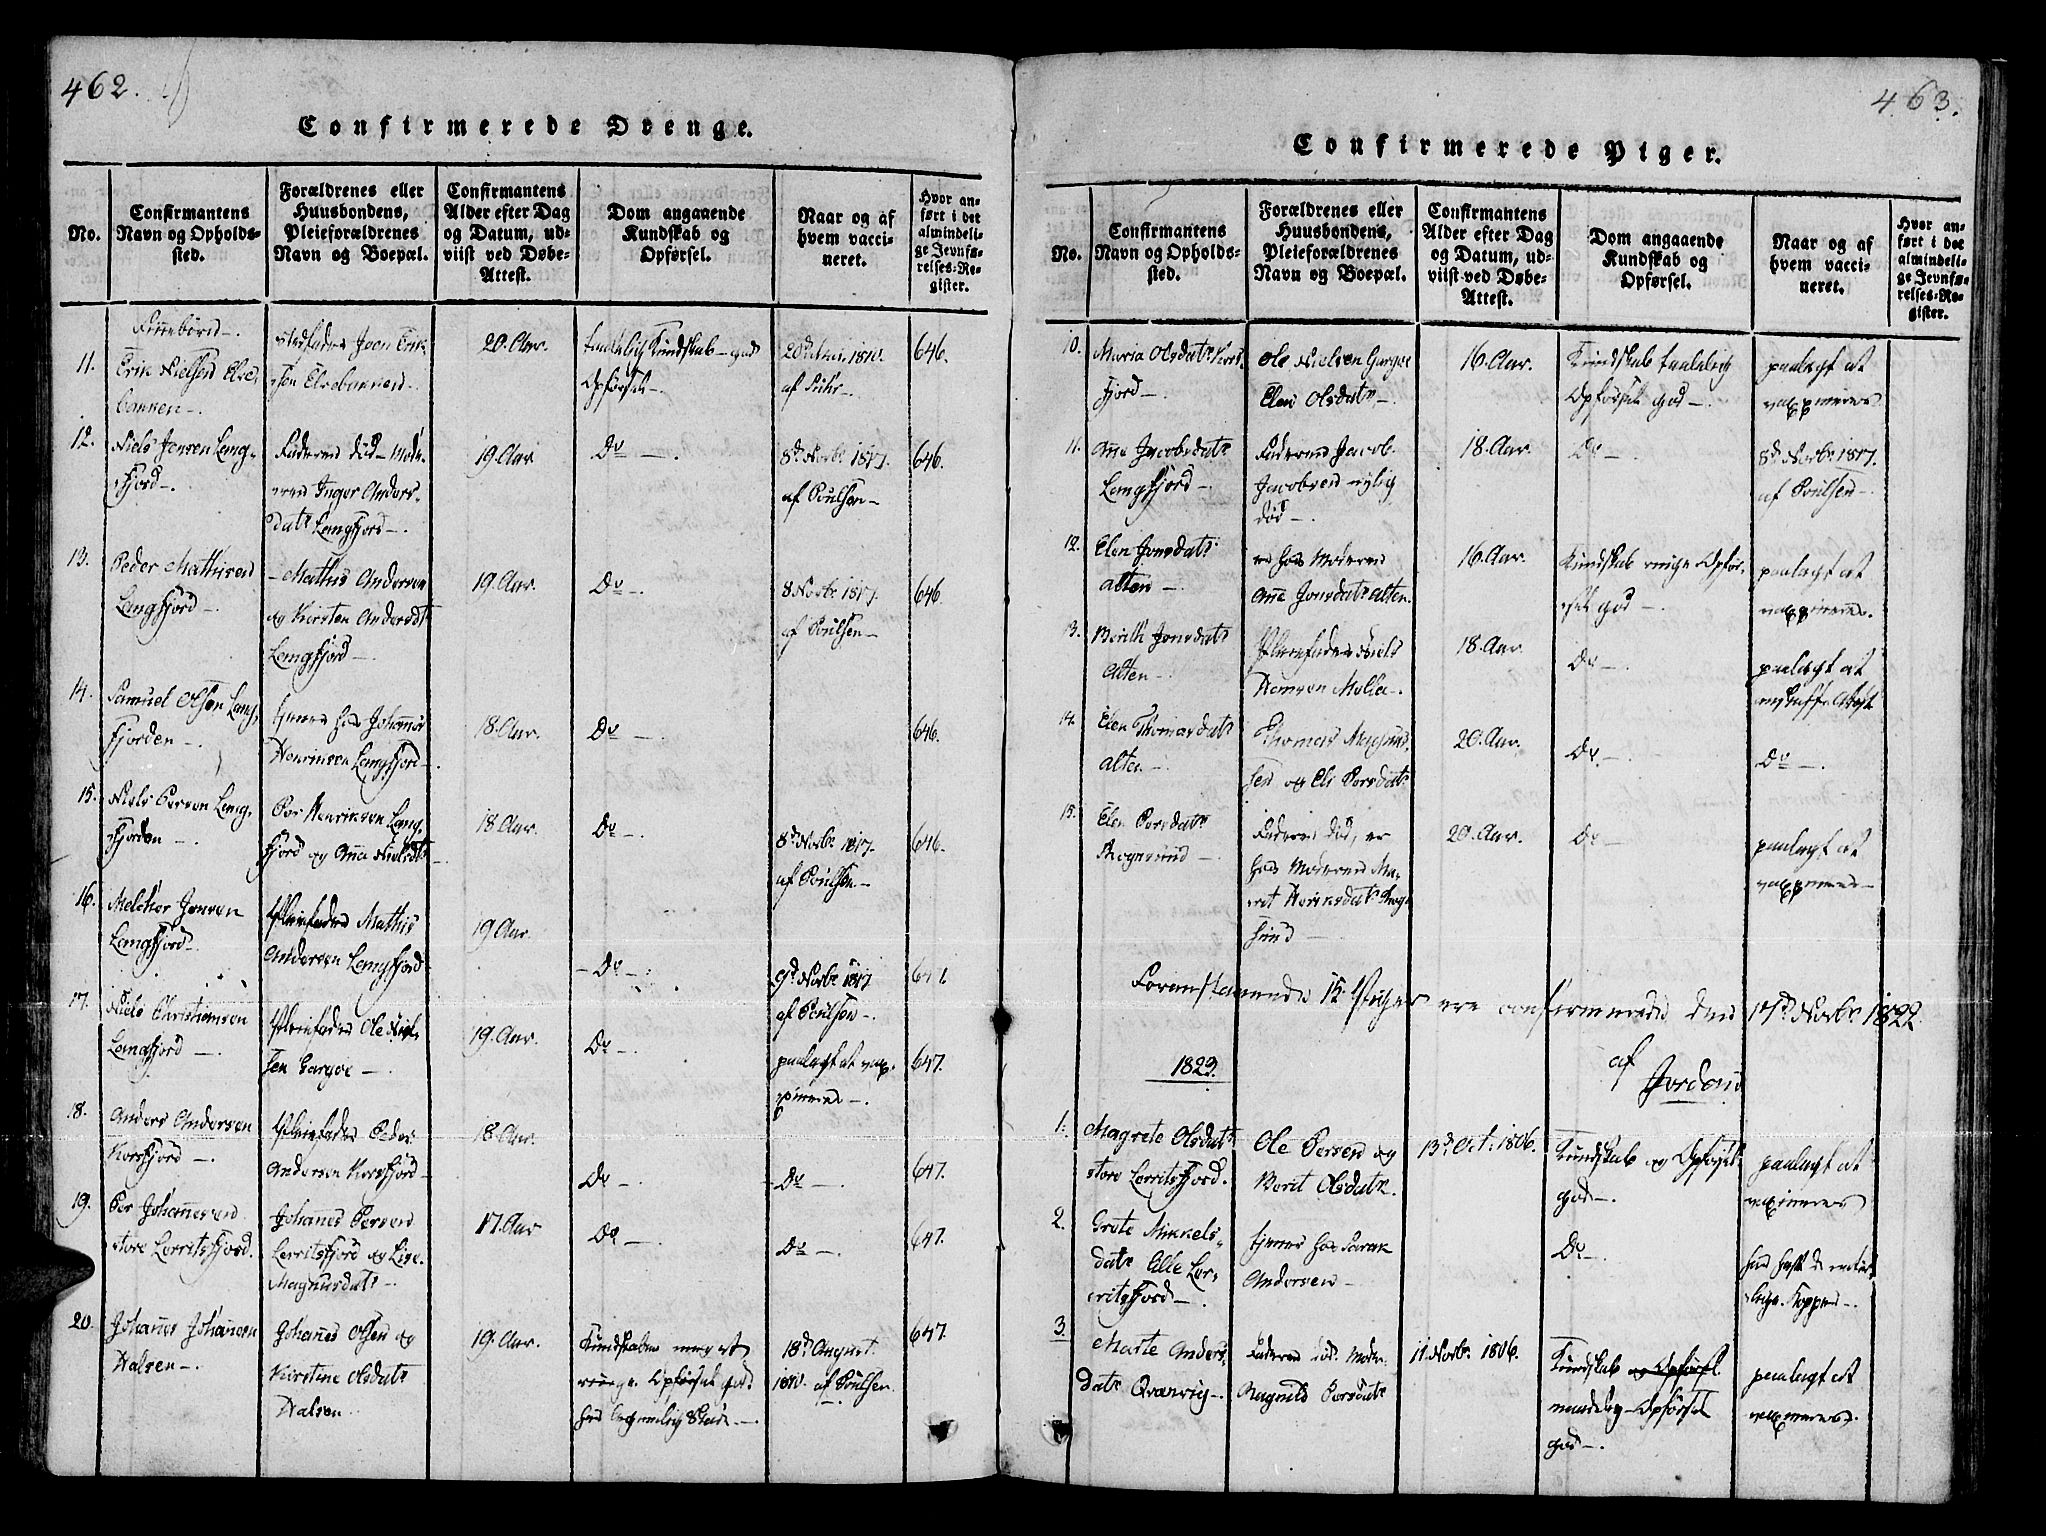 462.
Confirmerede Drenge.
No.
Confirmantens
Navn og Opholds-
sted.
Forældrenes eller
Huusbondens,
Pleieforældrenes
Navn og Boepæl.
Confirmantens
Alder efter Dag
og Datum, ud-
viist ved Døbe-
Attest.
Dom angaaende
Kundskab og
Opførsel.
Naar og af
hvem vacci-
neret.
Hvor an-
ført i det
almindeli-
ge Jevnfø-
relses-Re-
gister.
Finnebørn-.
11.
Erik Nielsen Elve
bakken-.
Stedfader Joen Erik
sen Elvebakken-.
20. Aar.
taalelig Kundskab - god
Opførsel-.
af Suhr-.
646.
12.
Niels Jonsen Lang-
fjord-.
Faderen død - Mode-
ren Inger Anders-
datr Langfjord-.
19. Aar
Do -.
8d Novbr 1817.
af Poulsen-
646.
13.
Peder Mathisen
Langfjord-.
Mathis Andersen
og Kirsten Andersdt
Langfjord-.
19. Aar.
Do -.
8 Novbr 1817.
af Poulsen-
646.
14.
Samuel Olsen Lang-
fjorden-.
tjener hos Johannes
Henriksen Langfjord-.
18. Aar.
Do -.
646.
15.
Niels Persen Lang-
fjorden-
Per Henriksen Lang-
fjord og Anna Nielsdtr
18. Aar.
Do -.
8d Novbr 1817.
af Poulsen-
646.
16.
Melchior Jonsen
Langfjord-.
Pleiefader Mathis
Andersen Langfjord
19. Aar.
- Do -.
9d Novbr 1817
af Poulsen-.
647.
17.
Niels Christiansen
Langfjord-.
Pleiefader Ole Niel-
sen Gargoe-
19. Aar.
Do -.
paalagt at vax-
cineres-.
647.
18.
Anders Andersen
Korsfjord-.
Pleiefader Peder
Andersen Korsfjord-
18. Aar.
Do -.
- Do -.
647.
19.
Per Johannesen
store Lerritsfjord.
Johannes Persen
Lerritsfjord og Lise
Magnusdatr-.
17. Aar
Do -.
Do -.
647.
20.
Johannes Johansen
Halsen-.
Johannes Olsen og
Kirstine Olsdatr
Halsen
19. Aar.
Kundskaben meget
ringe. Opførsel god
18d August
1810. af Poulsen.
647.
463.
Confirmerede Piger.
No.
Confirmantens
Navn og Opholds-
sted.
Forældrenes eller
Huusbondens,
Pleieforældrenes
Navn og Boepæl.
Confirmantens
Alder efter Dag
og Datum, ud-
viist ved Døbe-
Attest.
Dom angaaende
Kundskab og
Opførsel.
Naar og af
hvem vacci-
neret.
Hvor an-
ført i det
almindeli-
ge Jevnfø-
relses-Re-
gister.
10.
Maria Olsdatr Kors-
fjord-
Ole Nielsen Gargoe
Elen Olsdatr-.
16. Aar.
Kundskab taalelig
Opførsel god-.
paalagt at
vaxcineres
11.
Ane Jacobsdatr
Langfjord-.
Faderen Jacob
Jacobsen nylig
død-.
18. Aar.
Do -.
8d Novbr 1817.
af Poulsen-.
12.
Elen Jonsdatr
Alten-.
er hos Moderen
Ane Jonsdatr Alten.
16. Aar.
Kundskab ringe Opfør-
sel god-.
paalagt at
vaxcineres.
13.
Berith Jonsdatr
Alten-.
Pleiefader Niels
Hansen Molla-.
18. Aar.
Do -.
paalagt at
14.
Elen Thomasdatr
Alten-.
Thomas Magnus-
sen og Els Persdatr
20. Aar.
Do -.
Do -.
15.
Elen Persdatr
Rognsund-.
Faderen død, er
hos Moderen Ma-
ret Henriksdatr Rogn-
sund-
20. Aar.
Do -
paalagt at
vaxcineres-
Foranstaaende 15. Piger ere confirmerede den 17d Novbr. 1822
af Jordens
1823.
1.
Magrete Olsdatr
store Lerritsfjord.
Ole Persen og
Berit Olsdatr.
13d Oct. 1806.
Kundskab og Opførsel
god-.
paalagt at
vaxcineres
2.
Grete Mikkels-
datr lille Ler-
ritsfjord-.
tjener hos Sarak
Andersen-
Do -.
har havt de natur-
lige Kopper-.
3.
Marte Anders-
datr Qvænvig-.
Faderen død. Moder
Ragnild Persdatr
11 Novbr. 1806.
Kundskab og Opførsel
maadelig - Opførsel
god-.
paalagt at
vaxcineres.